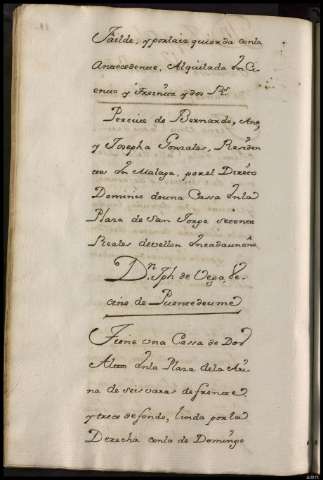 Failde, y por la izquierda con la
Antecedente, Alquilada en Ci
ento y treinta y dos Rs.
Percive de Bernarda, Ana,
y Josepha Gonzales, Residen
tes en Malaga, por el Directo
Dominio de una Cassa en la
Plaza de San Jorge setenta
Reales de vellon en cada un año
Dn. Jph de Vega, Ve
cino de Puentedeume
Tiene una Cassa de Dos
Altos en la Plaza de la Ari
na de seis varas de frente
y trece de fondo, linda por la
Derecha con la de Domingo